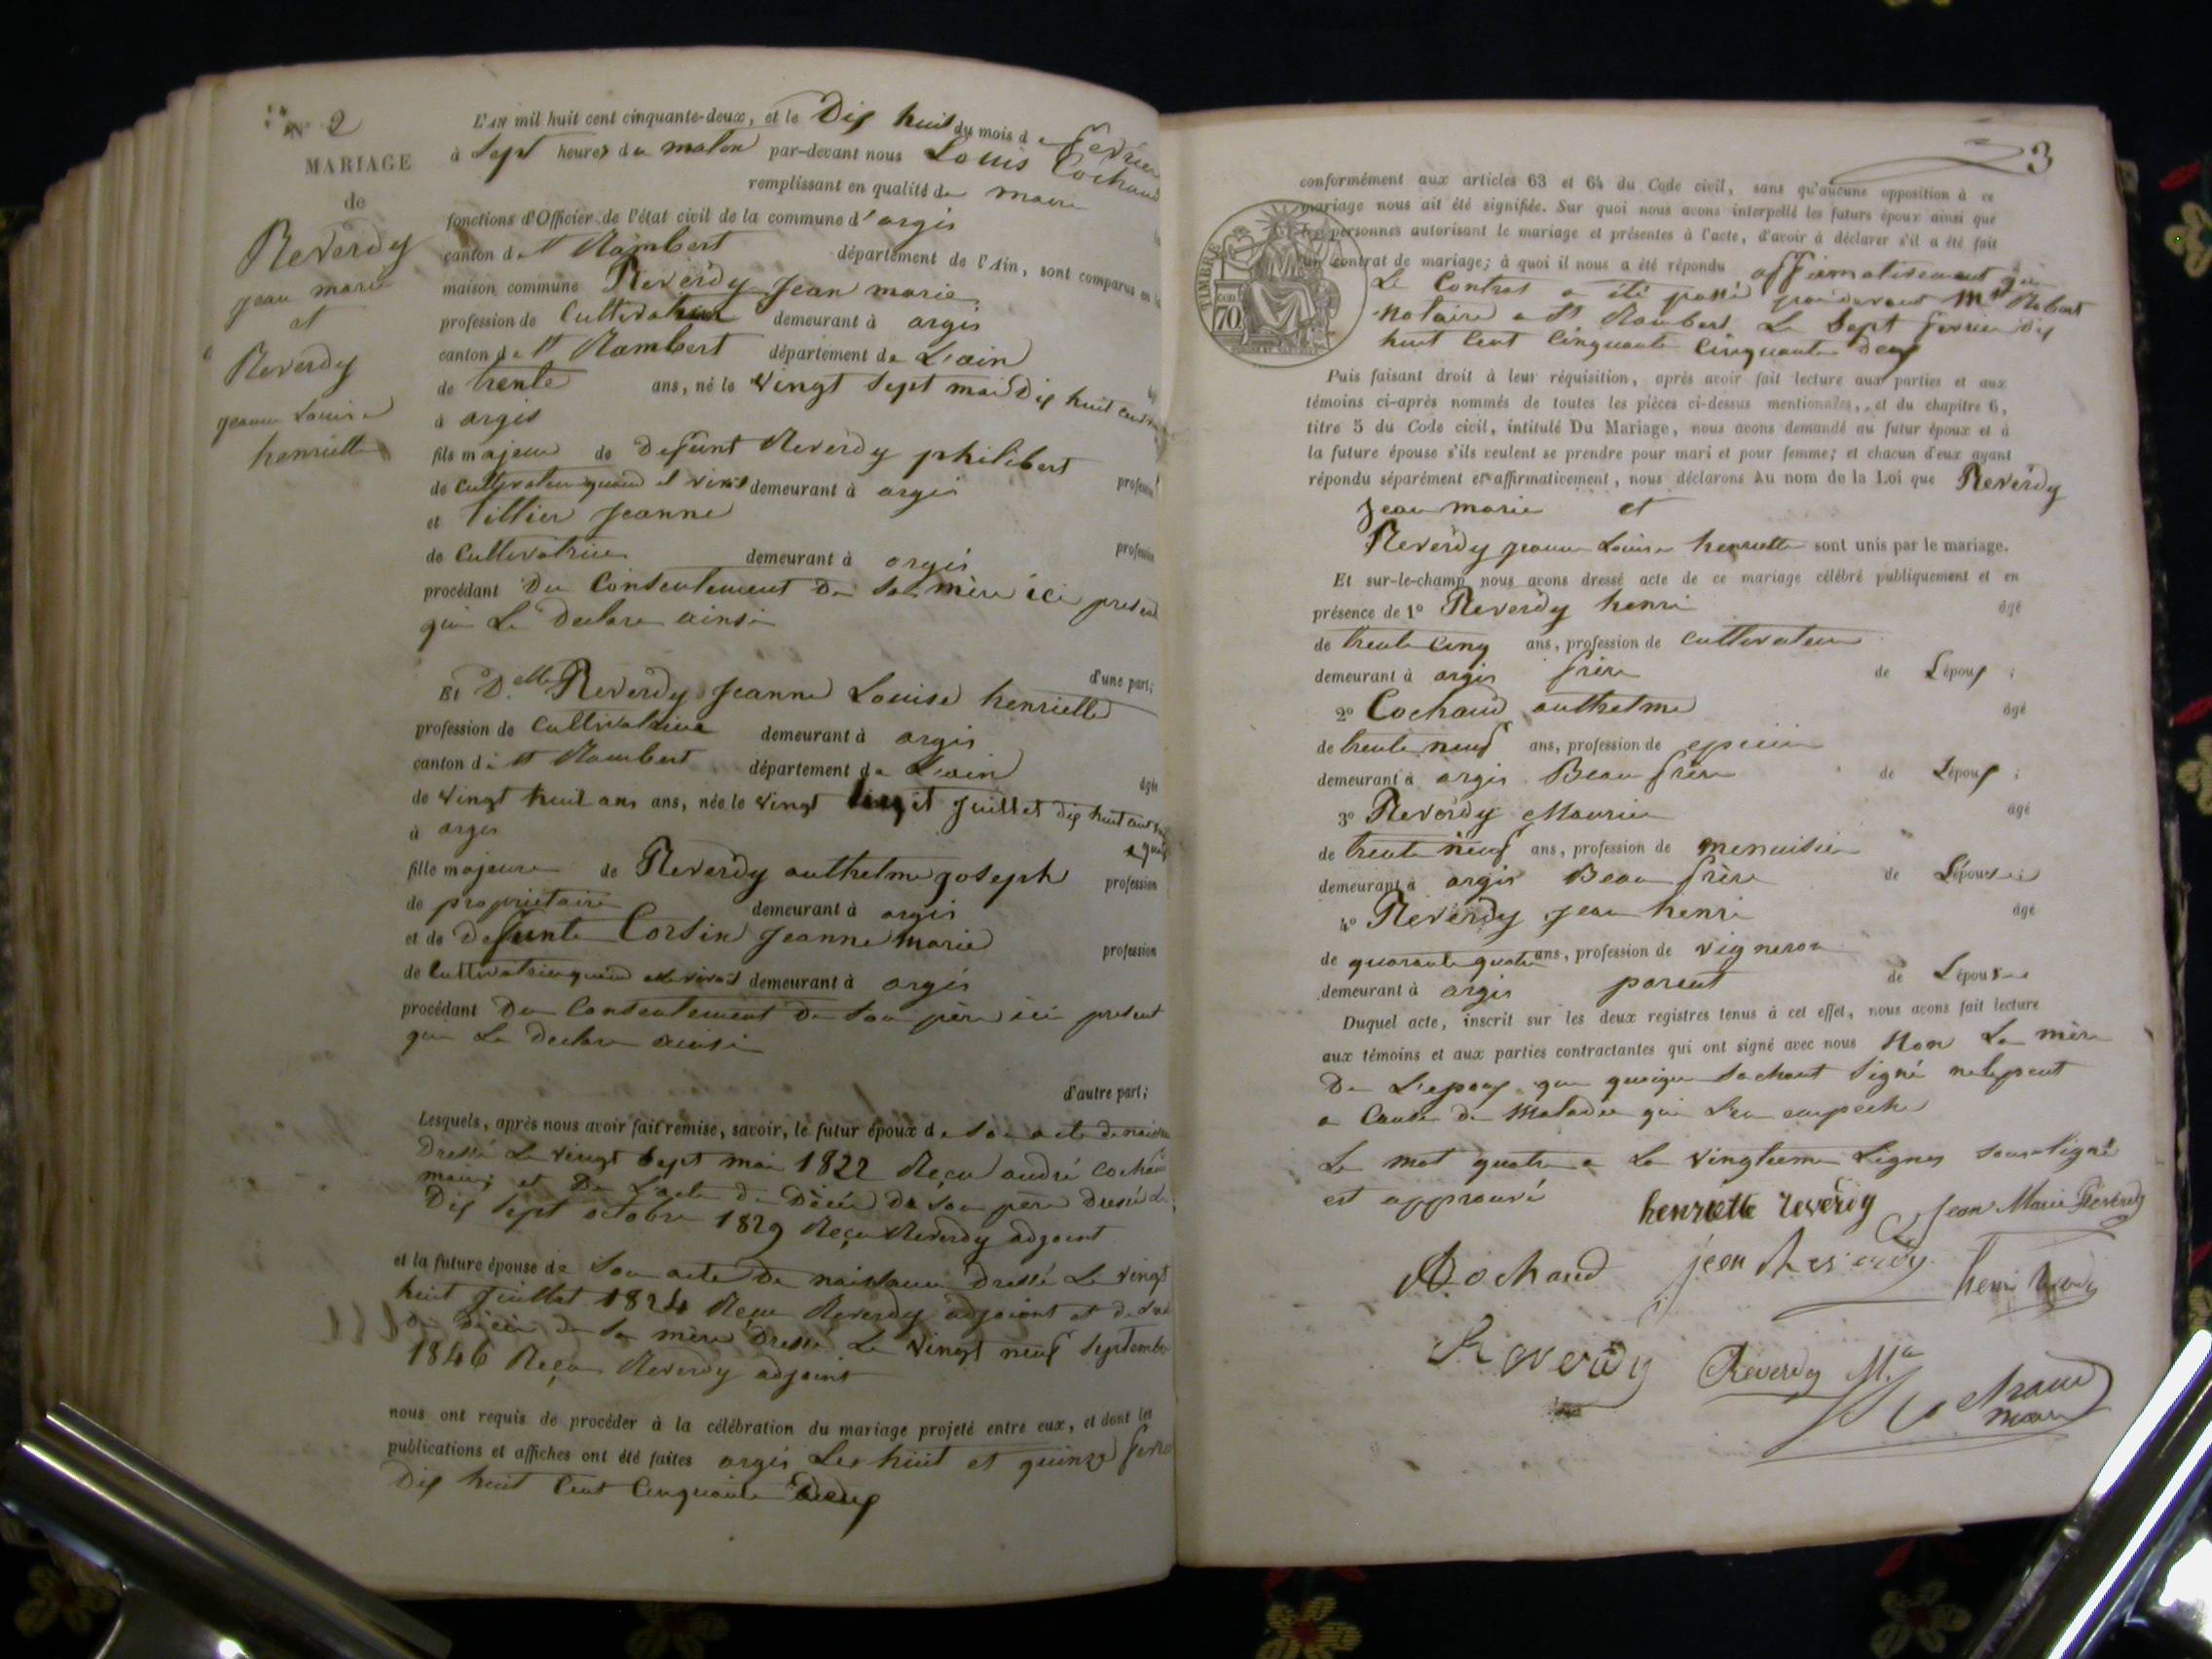 N° 2
MARIAGE
de
Reverdy
jean marie
et
Reverdy
jeanne Louise
henriette
L'an mil huit cent cinquante-deux, et le Dix huit du mois de Fevrier
à Sept heures du matin par-devant nous Louis Cochaud
remplissant en qualité de maire
fonctions d'Officier de l'état civil de la commune d'argis
canton de St Rambert département de l'Ain, sont comparus en la
maison commune Reverdy Jean marie
profession de Cultivateur demeurant à argis
canton de St Rambert département de L'ain
de trente ans, né le vingt Sept mai Dix huit cent
à argis
fils majeur de Defunt Reverdy philibert
profession
de cultivateur quand il vivait demeurant à argis
et tillier Jeanne
profession
de Cultivatrice demeurant à argis
procédant Du Consentement De Sa mère ici present
qui Le Declare ainsi
d'une part;
Et D.elle Reverdy Jeanne Louise henriette
profession de Cultivatrice demeurant à argis
canton de St Rambert département de L'ain
âgée
de vingt huit ans ans, née le vingt huit Juillet dix huit cent
à argis
fille majeure de Reverdy anthelme joseph profession
de proprietaire demeurant à argis
et de Defunte Corsin Jeanne marie profession
de Cultivatrice quand elle vivait demeurant à argis
procédant Du Consentement De Son père ici present
qui Le Declare ainsi
d'autre part;
Lesquels, après nous avoir fait remise, savoir, le futur époux de Son acte de naissance
Dressé Le vingt Sept mai 1822 Reçu andré Cochaud
maire et De L'acte De Décès De Son père Dressé Le
Dix Sept octobre 1829 Reçu Reverdy adjoint
et la future épouse de Son acte De naissance Dressé Le vingt
huit Juillet 1824 Reçu Reverdy adjoint et de
De Décès de Sa mère Dressé Le vingt neuf Septembre
1846 Reçu Reverdy adjoint
nous ont requis de procéder à la célébration du mariage projeté entre eux, et dont les
publications et affiches ont été faites argis Les huit et quinze fevrier
Dix huit Cent Cinquante Deux
3
conformément aux articles 63 et 64 du Code civil, sans qu'aucune opposition à ce
mariage nous ait été signifiée. Sur quoi nous avons interpellé les futurs époux ainsi que
les personnes autorisant le mariage et présentes à l'acte, d'avoir à déclarer s'il a été fait
un contrat de mariage; à quoi il nous a été répondu affirmativement que
Le Contrat a été passé pardevant Mtre Robert
Notaire a St Rambert Le Sept fevrier Dix
huit Cent Cinquante Cinquante Deux
TIMBRE
70
Puis faisant droit à leur réquisition, après avoir fait lecture aux parties et aux
témoins ci-après nommés de toutes les pièces ci-dessus mentionnées, et du chapitre 6,
titre 5 du Code civil, intitulé Du Mariage, nous avons demandé au futur époux et à
la future épouse s'ils veulent se prendre pour mari et pour femme; et chacun d'eux ayant
répondu séparément et affirmativement, nous déclarons Au nom de la Loi que Reverdy
Jean marie et
Reverdy jeanne Louise henriette sont unis par le mariage.
Et sur-le-champ nous avons dressé acte de ce mariage célébré publiquement et en
présence de 1° Reverdy henri âgé
de trente cinq ans, profession de cultivateur
demeurant à argis frère de L'époux ;
2° Cochaud anthelme âgé
de trente neuf ans, profession de epicier
demeurant à argis Beau frère de L'époux ;
3° Reverdy Maurice âgé
de trente neuf ans, profession de menuisier
demeurant à argis Beau frère de L'épouse ;
4° Reverdy jean henri âgé
de quarante quatre ans, profession de vigneron
demeurant à argis parent de L'épouse
Duquel acte, inscrit sur les deux registres tenus à cet effet, nous avons fait lecture
aux témoins et aux parties contractantes qui ont signé avec nous Non La mère
De L'epoux que quoique Sachant Signé ne le peut
a Cause De Maladie qui L'en empeche
Le mot quatre a La vingtieme Lignes Sousligné
est approuvé
henriette reverdy Jean Marie Reverdy
Cochaud jean Reverdy henri Reverdy
Reverdy Reverdy Mce Cochaud
maire